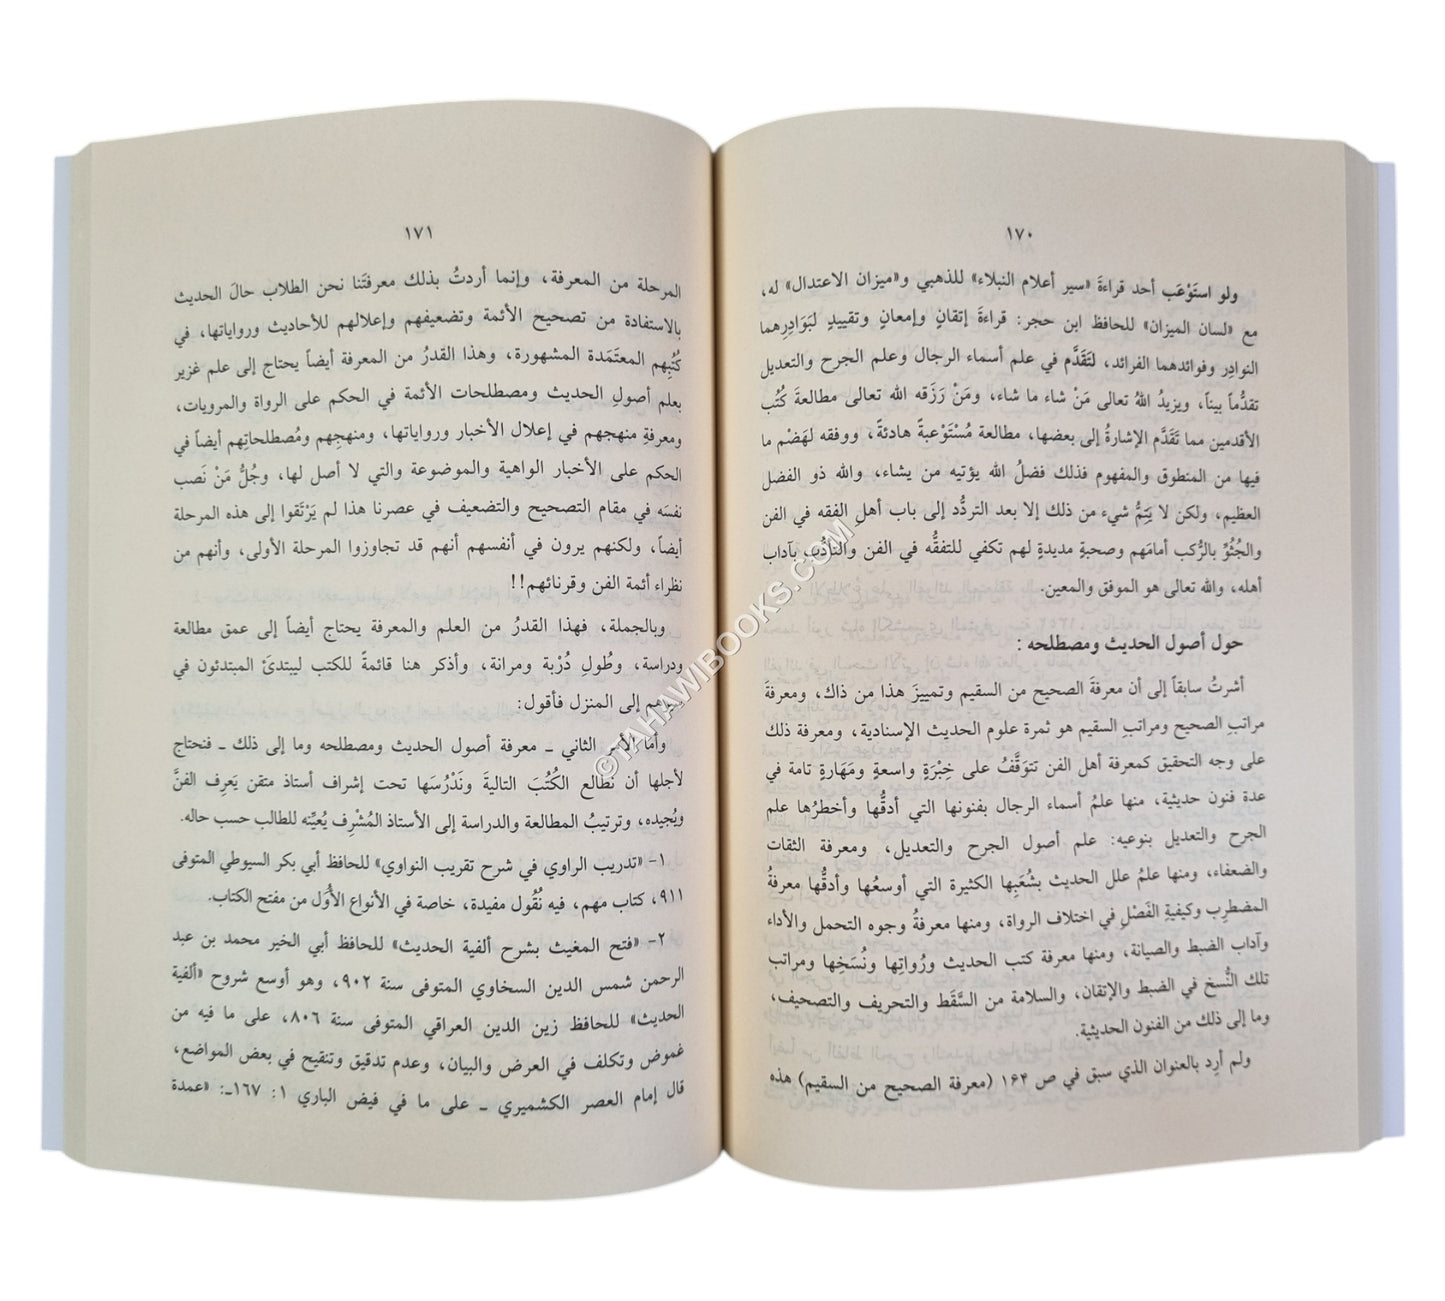 ١٧٠
ولو استَوْعَب أحد قراءةَ «سير أعلام النبلاء» للذهبي و«ميزان الاعتدال» له،
مع «لسان الميزان» للحافظ ابن حجر: قراءةَ إتقانٍ وإمعانٍ وتقييدٍ لبَوَادِرِهما
النوادِر وفوائدهما الفرائد، لتَقَدَّم في علم أسماء الرجال وعلم الجرح والتعديل
تقدُّماً بيناً، ويزيدُ اللهُ تعالى مَنْ شاء ما شاء، ومَنْ رَزَقه الله تعالى مطالعةَ كُتُب
الأقدمين مما تَقَدَّم الإشارةُ إلى بعضها، مطالعة مُسْتَوْعِبةً هادئةً، ووفقه لهَضْم ما
فيها من المنطوق والمفهوم فذلك فضلُ الله يؤتيه من يشاء، والله ذو الفضل
العظيم، ولكن لا يَتِمُّ شيء من ذلك إلا بعد التردُّد إلى باب أهلِ الفقه في الفن
والجُثُوِّ بالرُّكب أمامَهم وصحبةٍ مديدةٍ لهم تكفي للتفقُّه في الفن والتأدُّب بآداب
أهله، والله تعالى هو الموفق والمعين.
حول أصول الحديث ومصطلحه :
أشرتُ سابقاً إلى أن معرفةَ الصحيح من السقيم وتمييزَ هذا من ذاك، ومعرفةَ
مراتبِ الصحيح ومراتبِ السقيم هو ثمرة علوم الحديث الإسنادية، ومعرفة ذلك
على وجه التحقيق كمعرفة أهل الفن تتوَقَّفُ على خِبْرَةٍ واسعةٍ ومَهَارةٍ تامة في
عدة فنون حديثية، منها علمُ أسماء الرجال بفنونها التي أدقُّها وأخطرُها علم
الجرح والتعديل بنوعيه: علم أصول الجرح والتعديل، ومعرفة الثقات
والضعفاء، ومنها علمُ علل الحديث بشُعَبِها الكثيرة التي أوسعُها وأدقُّها معرفةُ
المضطرِب وكيفيةِ الفَصْلِ في اختلاف الرواة، ومنها معرفةُ وجوه التحمل والأداء
وآداب الضبط والصيانة، ومنها معرفة كتب الحديث ورُواتِها ونُسَخِها ومراتب
تلك النُّسخ في الضبط والإتقان، والسلامة من السَّقَط والتحريف والتصحيف،
وما إلى ذلك من الفنون الحديثية.
ولم أرِد بالعنوان الذي سبق في ص ١٦٤ (معرفة الصحيح من السقيم) هذه
١٧١
المرحلة من المعرفة، وإنما أردتُ بذلك معرفتَنا نحن الطلاب حالَ الحديث
بالاستفادة من تصحيح الأئمة وتضعيفهم وإعلالهم للأحاديث ورواياتها، في
كُتُبِهم المعتَمَدة المشهورة، وهذا القدرُ من المعرفة أيضاً يحتاج إلى علم غزير
بعلم أصولِ الحديث ومصطلحات الأئمة في الحكم على الرواة والمرويات،
ومعرفةِ منهجهم في إعلال الأخبار ورواياتها، ومنهجهم ومُصطلحاتِهم أيضاً في
الحكم على الأخبار الواهية والموضوعة والتي لا أصل لها، وجُلُّ مَنْ نَصب
نفسَه في مقام التصحيح والتضعيف في عصرنا هذا لم يَرْتَقوا إلى هذه المرحلة
أيضاً، ولكنهم يرون في أنفسهم أنهم قد تجاوزوا المرحلة الأولى، وأنهم من
نظراء أئمة الفن وقرنائهم!!
وبالجملة، فهذا القدرُ من العلم والمعرفة يحتاج أيضاً إلى عمق مطالعة
ودراسة، وطُولِ دُرْبة ومرانة، وأذكر هنا قائمةً للكتب ليبتدئَ المبتدئون في
إلى المنزل فأقول:
وأما الأمر الثاني ـ معرفة أصول الحديث ومصطلحه وما إلى ذلك ـ فنحتاج
لأجلها أن نُطالع الكُتُبَ التاليةَ ونَدْرُسَها تحت إشراف أستاذ متقن يَعرِف الفنَّ
ويُجيده، وترتيبُ المطالعة والدراسة إلى الأستاذ المُشْرِف يُعيِّنه للطالب حسب حاله.
١- «تدريب الراوي في شرح تقريب النواوي» للحافظ أبي بكر السيوطي المتوفى
٩١١، كتاب مهم، فيه نُقُول مفيدة، خاصة في الأنواع الأُوَل من مفتح الكتاب.
٢- «فتح المغيث بشرح ألفية الحديث» للحافظ أبي الخير محمد بن عبد
الرحمن شمس الدين السخاوي المتوفى سنة ٩٠٢، وهو أوسع شروح «ألفية
الحديث» للحافظ زين الدين العراقي المتوفى سنة ٨٠٦، على ما فيه من
غموض وتكلف في العرض والبيان، وعدم تدقيق وتنقيح في بعض المواضع،
قال إمام العصر الكشميري ـ على ما في فيض الباري ١: ١٦٧ـ: «عمدة
©TAHAWIBOOKS.COM